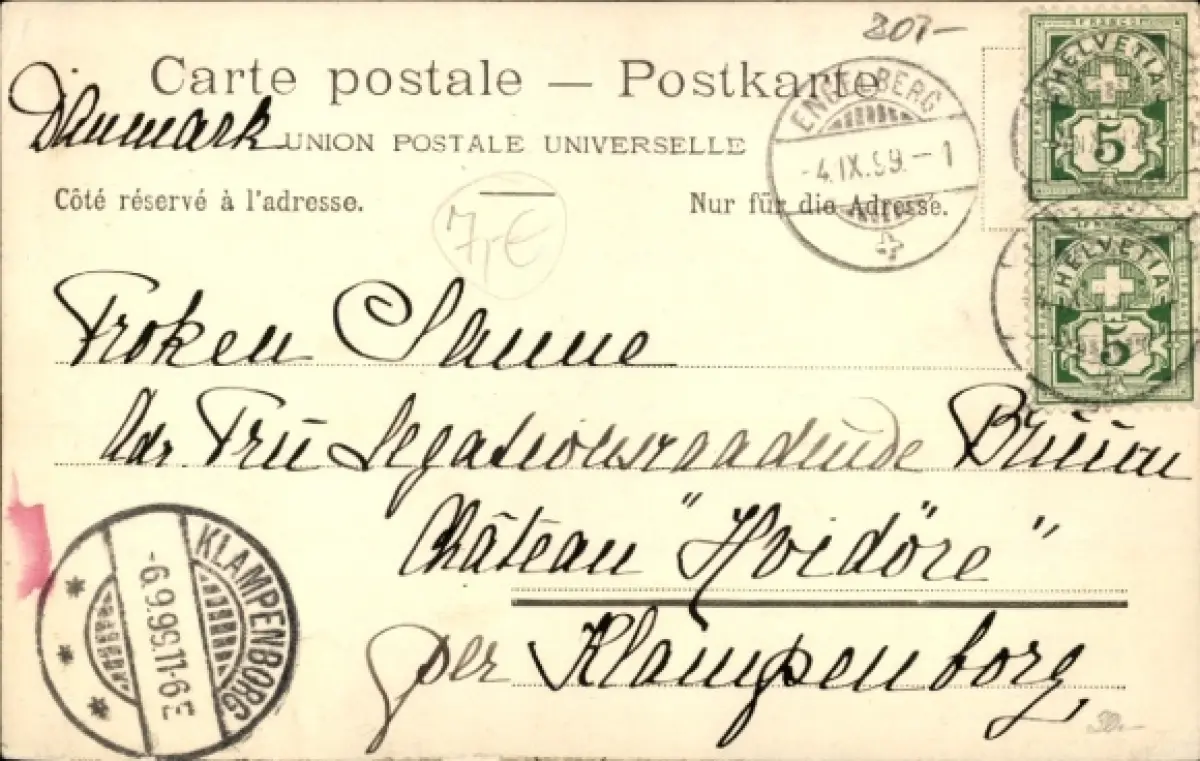 807-
Carte postale — Postkarte
Denmark
UNION POSTALE UNIVERSELLE
Côté réservé à l'adresse.
Nur für die Adresse.
7,-€
ENGELBERG
-4.IX.99.-1
FRANCO
HELVETIA
5
FRANCO
HELVETIA
5
Froken Sanne
Adr. Frü Legationsraadinde Brüün
Château "Hvidöre"
per Klampenborg
KLAMPENBORG
-6.9.99.11-6 E